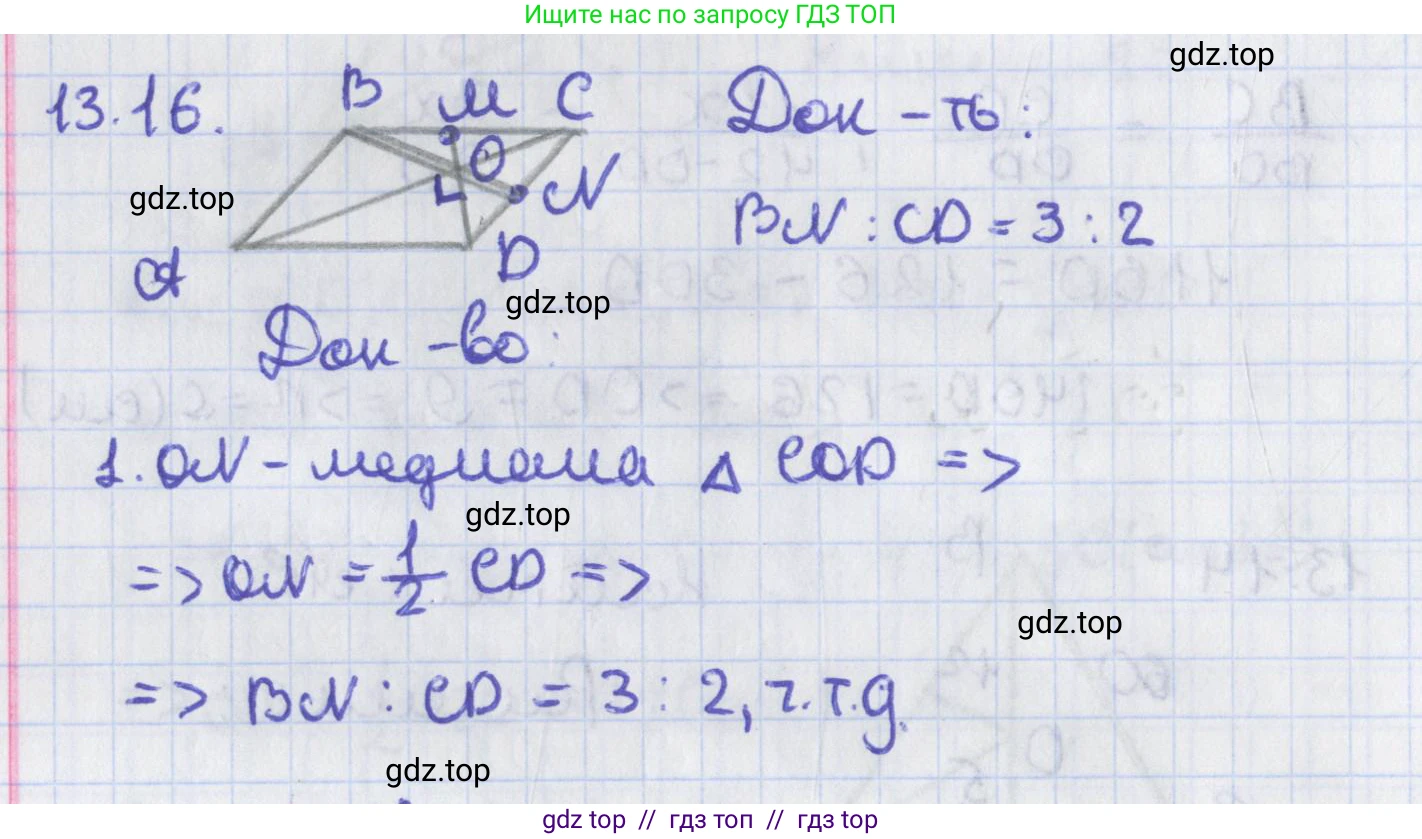 Ищите нас по запросу ГДЗ ТОП
gdz.top
13.16.
B M C
O
N
A
D
Док-ть:
BN : CD = 3 : 2
gdz.top
gdz.top
Док-во:
1. ON - медиана △ COD =>
gdz.top
=> ON = 1/2 CD =>
gdz.top
=> BN : CD = 3 : 2, ч.т.д.
gdz.top
gdz.top // гдз топ // гдз top